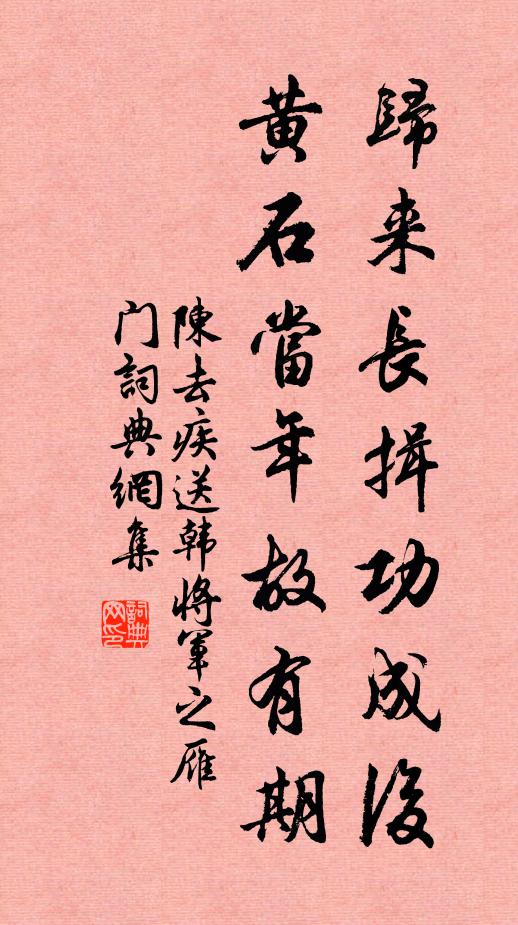 歸来長揖功成後
黃石當年故有期
陳去疾送韩将軍之雁
门詞典網集
詞典
网印